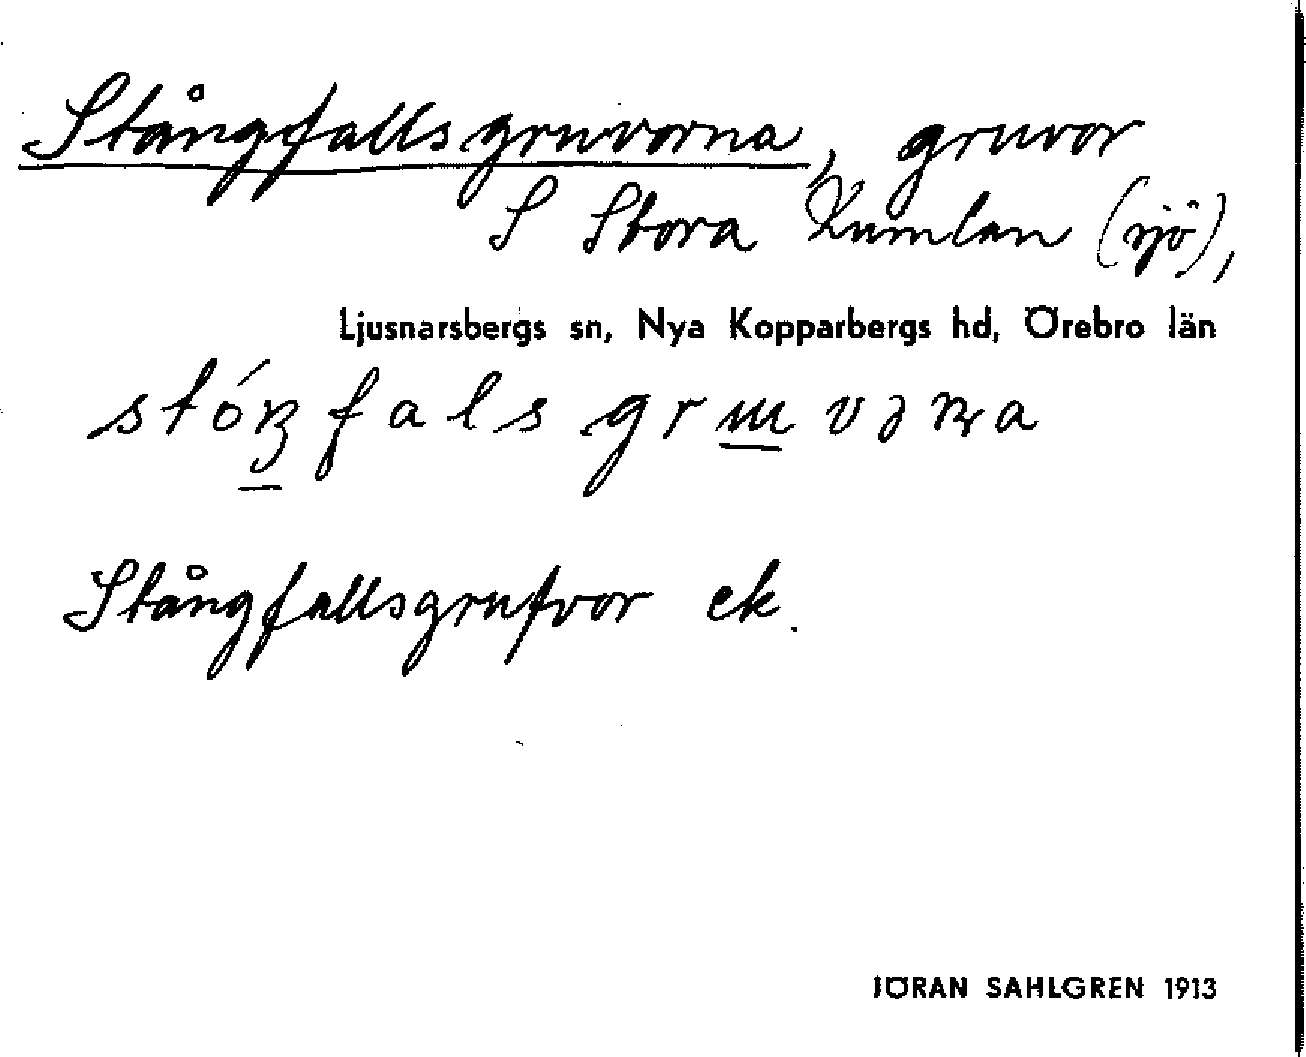 Stångfallsgruvorna, gruvor
S Stora Kumlan (sjö),
Ljusnarsbergs sn, Nya Kopparbergs hd, Örebro län
stóŋfalsgruvəɳa
Stångfallsgrufvor ek.
JÖRAN SAHLGREN 1913